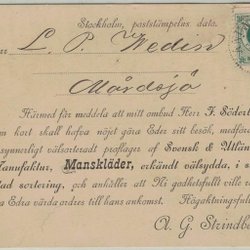 Stockholm, poststämpelns dato.
L. P. Wedin
Mårdsjö
Härmed får meddela att mitt ombud Herr F. Söderl
om kort skall hafva nöjet göra Eder sitt besök, medföra
synnerligt välsorteradt proflager af Svensk & Utlän
Manufaktur, Manskläder, erkändt välsydda, i s
lad sortering, och anhåller att Ni godhetsfullt ville re
a Edra värda ordres till hans ankomst. Högaktningsfull
A. G. Strindl